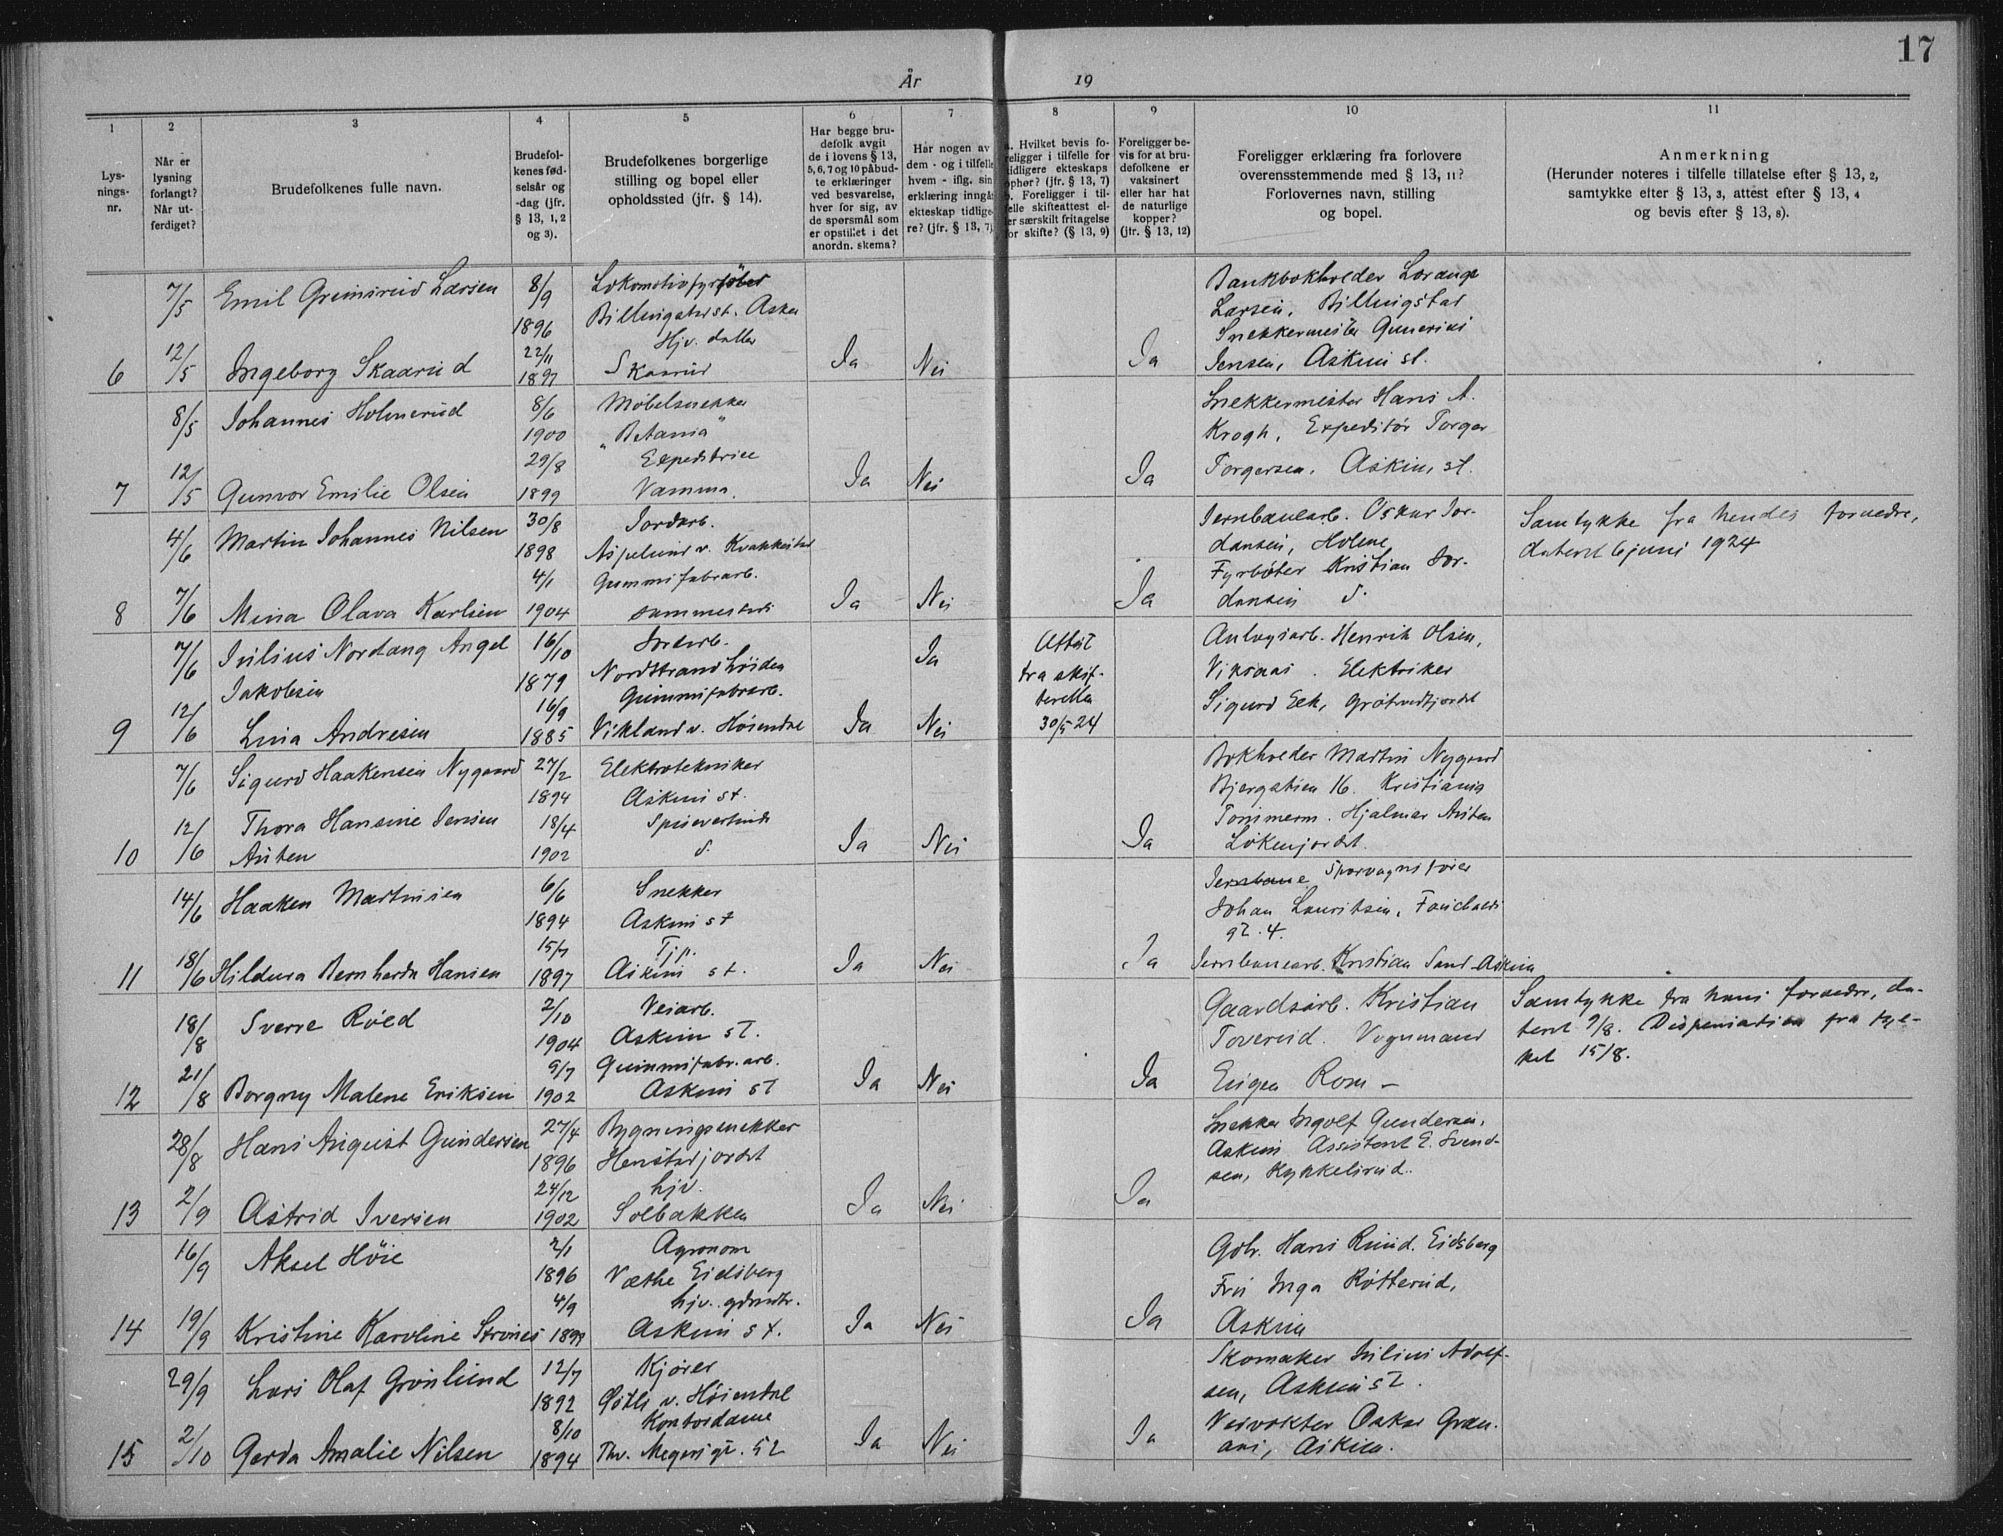 17
År 19
1
2
3
4
5
6
7
8
9
10
11
Lys-
nings-
nr.
Når er
lysning
forlangt?
Når ut-
ferdiget?
Brudefolkenes fulle navn.
Brudefol-
kenes fød-
selsår og
-dag (jfr.
§ 13, 1, 2
og 3).
Brudefolkenes borgerlige
stilling og bopel eller
opholdssted (jfr. § 14).
Har begge bru-
defolk avgit
de i lovens § 13,
5, 6, 7 og 10 påbud-
te erklæringer
ved besvarelse,
hver for sig, av
de spørsmål som
er opstillet i det
anordn. skema?
Har nogen av
dem - og i tilfelle
hvem - iflg. sin
erklæring inngå
ekteskap tidlige-
re? (jfr. § 13, 7)
a. Hvilket bevis fo-
religger i tilfelle for
tidligere ekteskaps
ophør? (jfr. § 13, 7)
b. Foreligger i til-
felle skifteattest el-
ler særskilt fritagelse
for skifte? (§ 13, 9)
Foreligger be-
vis for at bru-
defolkene er
vaksinert
eller har hat
de naturlige
kopper?
(jfr. § 13, 12)
Foreligger erklæring fra forlovere
overensstemmende med § 13, 11?
Forlovernes navn, stilling
og bopel.
Anmerkning
(Herunder noteres i tilfelle tillatelse efter § 13, 2,
samtykke efter § 13, 3, attest efter § 13, 4
og bevis efter § 13, 8).
6
7/5
12/5
Emil Grimsrud Larsen
Ingeborg Skaarud
8/9
1896
22/11
1897
Lokomotivfyrbøter
Billingstad st. Asker
Hjv. datter
Skaarud
Ja
Nei
Ja
Bankbokholder Lorang
Larsen, Billingstad
Snekkermester Gunerius
Jensen, Askim st.
7
8/5
12/5
Johannes Holmerud
Gunvor Emilie Olsen
8/6
1900
29/8
1899
Møbelsnekker
"Betania"
Expeditrice
Vamma.
Ja
Nei
Ja
Snekkermester Hans A.
Krogh, Expeditør Torger
Torgersen, Askim st.
8
4/6
7/6
Martin Johannes Nilsen
Mina Olava Karlsen
30/8
1898
4/1
1904
Jordarb.
Aspelund v.
Gummifabrarb.
sammesteds
Ja
Nei
Ja
Jernbanearb. Oskar Jor-
dansen, Holene
Fyrbøter Kristian Jor-
dansen d.
Samtykke fra hendes forældre,
datert 6 juni 1924
9
7/6
12/6
Julius Nordang Angel
Jakobsen
Lina Andresen
16/10
1879
16/9
1885
Nordstrandhøiden
Gummifabrarb.
Vikland v. Høiendal
Ja
Ja
Nei
Attest
fra skif-
teretten
30/5-24
Anlegsarb. Henrik Olsen,
Elektriker
Sigurd Eek,
10
7/6
12/6
Sigurd Haakensen Nygaard
Thora Hansine Jensen
Austen
27/2
1894
18/4
1902
Elektrotekniker
Askim st.
d.
Ja
Nei
Ja
Bokholder Martin Nygaard
Bjergstien 16. Kristiania
Tømmerm. Hjalmar Austen
Løkenjordet.
11
14/6
18/6
Haaken Martinsen
Hildura Bernharda Hansen
6/6
1894
15/7
1897
Snekker
Askim st
Tjp.
Askim st.
Ja
Nei
Ja
Jernbane Sporvognsfører
Johan Lauritsen,
gt. 4.
Jernbanearb. Kristian Sand Askim
12
18/8
21/8
Sverre Røed
Borgny Malene Eriksen
2/10
1904
9/7
1902
Veiarb.
Askim st.
Gummifabr. arb.
Askim st
Ja
Nei
Ja
Gaardsarb. Kristian
Toverud. Vognmand
Eugen Rom –
Samtykke fra hans forældre, da-
tert 9/8. Dispensation fra fyl-
ket 15/8.
13
28/8
2/9
Hans August Gundersen
Astrid Iversen
27/4
1896
24/12
1902
Bygningssnekker
Henstadjordet
hjv.
Solbakken
Ja
Nei
Ja
Snekker Ingolf Gundersen,
Askim Assistent E. Svend-
sen, Kykkelsrud.
14
16/9
19/9
Aksel Høie
Kristine Karoline Strønes
2/1
1896
4/9
1899
Agronom
Væthe Eidsberg
hjv. gdmdtr.
Askim st.
Ja
Nei
Ja
Gbr. Hans Ruud. Eidsberg
Fru Inga Røtterud,
Askim
15
29/9
2/10
Lars Olaf Grønlund
Gerda Amalie Nilsen
12/7
1892
8/10
1894
Kjører
v. Høiendal
Kontordame
Thv. Meyersgt. 52
Ja
Nei
Ja
Skomaker Julius Adolf-
sen, Askim st.
Veivokter Oskar Gran-
aas, Askim.